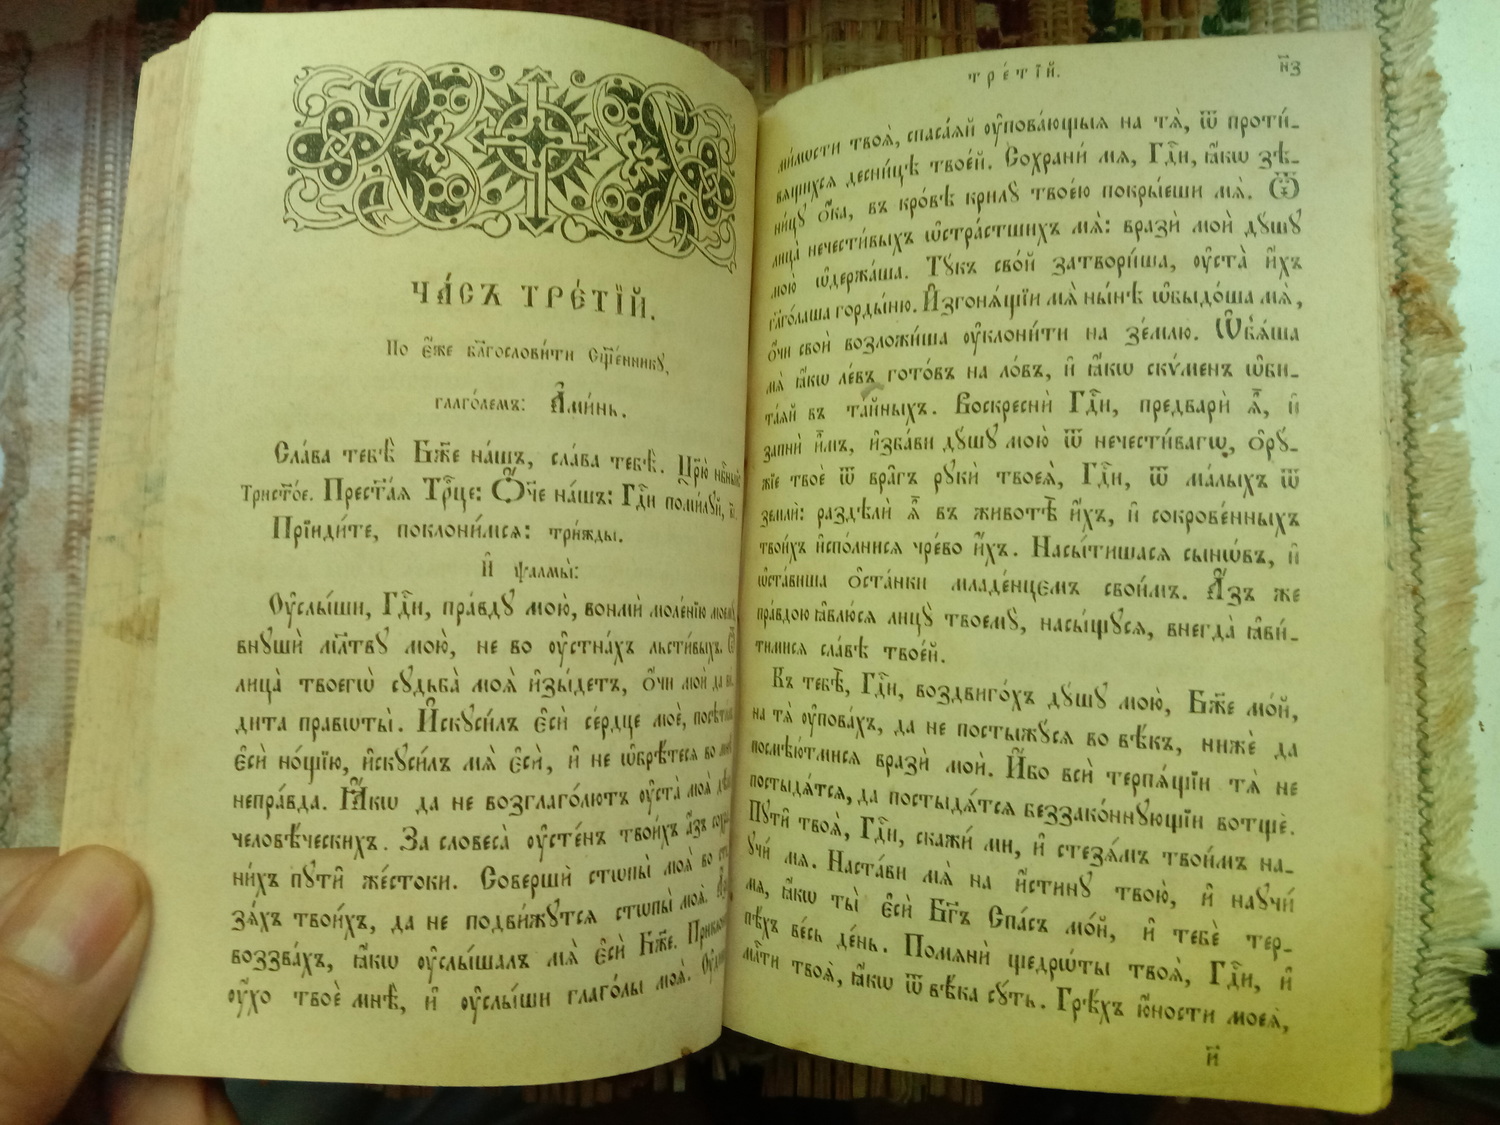 ЧА́СЪ ТРЕ́ТЇЙ.
По є҆́же блг҃ослови́ти Сщ҃е́нникꙋ,
глаго́лемъ: А҆ми́нь.
Сла́ва тебѣ̀ Бж҃е на́шъ, сла́ва тебѣ̀. Цр҃ю̀ нбⷭ҇ный:
Трист҃о́е. Прест҃а́я Трⷪ҇це: Ѻ҆́ч҃е на́шъ: Гдⷭ҇и поми́лꙋй, в҃і.
Прїиди́те, поклони́мся: три́жды.
И҆ ѱалмы̀:
Оу҆слы́ши, Гдⷭ҇и, пра́вдꙋ мою̀, вонмѝ моле́нїю моемꙋ̀
внꙋшѝ мл҃твꙋ мою̀, не во оу҆стна́хъ льсти́выхъ. Ѿ
лица̀ твоегѡ̀ сꙋдьба̀ моѧ̀ и҆зы́детъ, ѻ҆́чи моѝ да ви́-
дита правѡты̀. И҆скꙋси́лъ є҆сѝ се́рдце моѐ, посѣти́лъ
є҆сѝ но́щїю, и҆скꙋси́лъ мѧ̀ є҆сѝ, и҆ не ѡ҆брѣ́тесѧ во мнѣ̀
непра́вда. Ꙗ҆́кѡ да не возглаго́лютъ оу҆ста̀ моѧ̀ дѣ́лъ
человѣ́ческихъ. За словеса̀ оу҆сте́нъ твои́хъ а҆́зъ сохра-
ни́хъ пꙋти̑ же́стоки. Совершѝ стѡпы̀ моѧ̀ во сте-
зѧ́хъ твои́хъ, да не подви́жꙋтсѧ стѡпы̀ моѧ̀. А҆́зъ
воззва́хъ, ꙗ҆́кѡ оу҆слы́шалъ мѧ̀ є҆сѝ Бж҃е. Приклонѝ
оу҆́хо твоѐ мнѣ̀, и҆ оу҆слы́ши глаго́лы моѧ̀. Оу҆дивѝ
ТРЕ́ТЇЙ.
н҃з
ми́лѡсти твоѧ̀, спаса́яй оу҆пова́ющыѧ на тѧ̀, ѿ проти́-
вѧщихсѧ десни́цѣ твое́й. Сохранѝ мѧ, Гдⷭ҇и, ꙗ҆́кѡ зѣ́-
ницꙋ ѻ҆́ка, въ кро́вѣ крилꙋ̀ твое́ю покры́еши мѧ̀. Ѿ
лица̀ нечести́выхъ ѡ҆стра́стшихъ мѧ̀: вразѝ моѝ дꙋшꙋ
мою̀ ѡ҆держа́ша. Тꙋ́къ сво́й затвори́ша, оу҆ста̀ и҆́хъ
глаго́лаша горды́ню. И҆згонѧ́щїи мѧ̀ ны́нѣ ѡ҆быдо́ша мѧ̀,
ѻ҆́чи своѝ возложи́ша оу҆клони́ти на зе́млю. Ѡ҆б̾ѧ́ша
мѧ̀ ꙗ҆́кѡ ле́въ гото́въ на ло́въ, и҆ ꙗ҆́кѡ скѵ́менъ ѡ҆би-
та́яй въ та́йныхъ. Воскреснѝ Гдⷭ҇и, предварѝ ѧ҆̀, и҆
запнѝ и҆̀мъ, и҆зба́ви дꙋ́шꙋ мою̀ ѿ нечести́вагѡ, ѻ҆рꙋ́-
жїе твоѐ ѿ вра̑гъ рꙋкѝ твоеѧ̀, Гдⷭ҇и, ѿ ма́лыхъ ѿ
землѝ: раздѣлѝ ѧ҆̀ въ животѣ̀ и҆́хъ, и҆ сокрове́нныхъ
твои́хъ и҆спо́лнисѧ чре́во и҆́хъ. Насы́тишасѧ сынѡ́въ, и҆
ѡ҆ста́виша ѻ҆ста́нки младе́нцемъ свои̑мъ. А҆́зъ же
пра́вдою ꙗ҆влю́сѧ лицꙋ̀ твоемꙋ̀, насы́щꙋсѧ, внегда̀ ꙗ҆ви́-
тимисѧ сла́вѣ твое́й.
Къ тебѣ̀, Гдⷭ҇и, воздвиго́хъ дꙋ́шꙋ мою̀, Бж҃е мо́й,
на тѧ̀ оу҆пова́хъ, да не постыжꙋ́сѧ во вѣ́къ, нижѐ да
посмѣю́тмисѧ вразѝ моѝ. И҆́бо всѝ терпѧ́щїи тѧ̀ не
постыдѧ́тсѧ, да постыдѧ́тсѧ беззако́ннꙋющїи вотщѐ.
Пꙋти̑ твоѧ̀, Гдⷭ҇и, скажи́ ми, и҆ стезѧ́мъ твои̑мъ на-
ꙋчѝ мѧ. Наста́ви мѧ̀ на и҆́стинꙋ твою̀, и҆ наꙋчи́
мѧ, ꙗ҆́кѡ ты̀ є҆сѝ Бг҃ъ Спа́съ мо́й, и҆ тебѐ тер-
пѣ́хъ ве́сь де́нь. Помѧнѝ щедрѡ́ты твоѧ̀, Гдⷭ҇и, и҆
млⷭ҇ти твоѧ̀, ꙗ҆́кѡ ѿ вѣ́ка сꙋ́ть. Грѣ̑хъ ю҆́ности моеѧ̀,
и҃